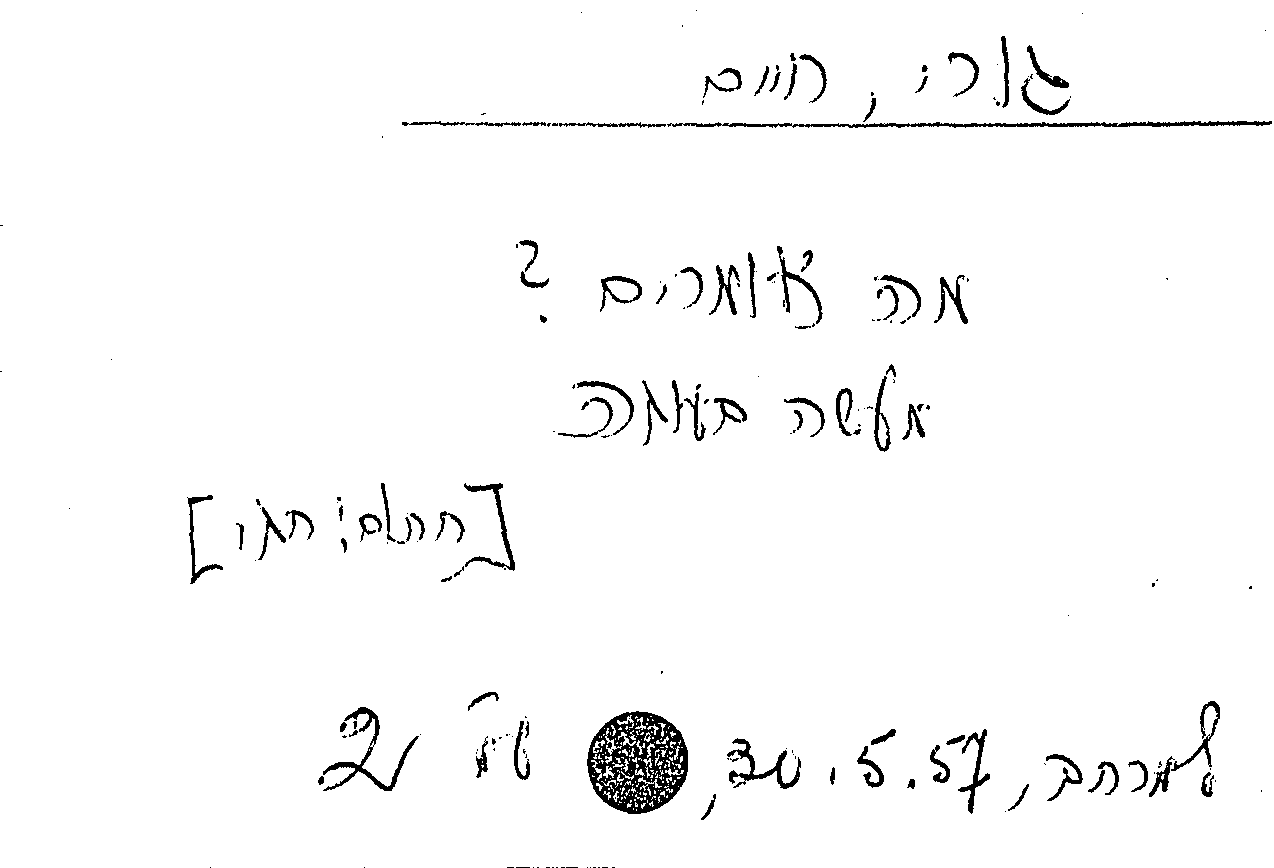 גורי, חיים
מה אומרים?
מעשה בעוגה
[חתום: חגי]
למרחב, 30.5.57, עמ' 2